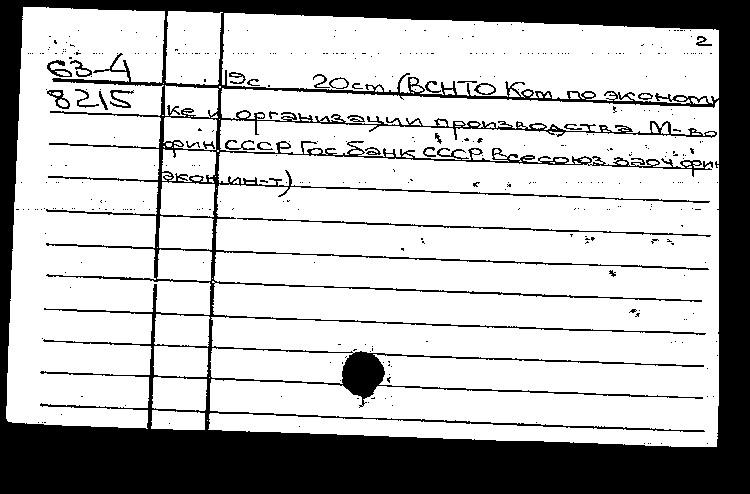 2
63-4 19с. 20см. (ВСНТО Ком. по экономи
8215 ке и организации производства. М-во
фин СССР. Гос. банк СССР. Всесоюз заоч. фин
экон. ин-т)